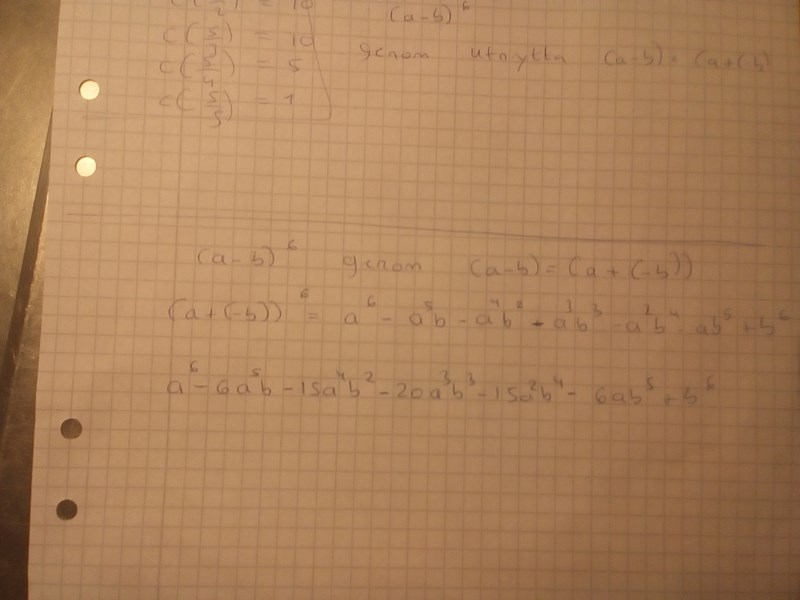 c(5/2) = 10
(a-b)^6
c(5/3) = 10
genom utnyttn (a-b) = (a+(b)
c(5/4) = 5
c(5/5) = 1
(a-b)^6 genom (a-b) = (a+(-b))
(a+(-b))^6 = a^6 - a^5b - a^4b^2 - a^3b^3 - a^2b^4 - ab^5 + b^6
a^6 - 6a^5b - 15a^4b^2 - 20a^3b^3 - 15a^2b^4 - 6ab^5 + b^6